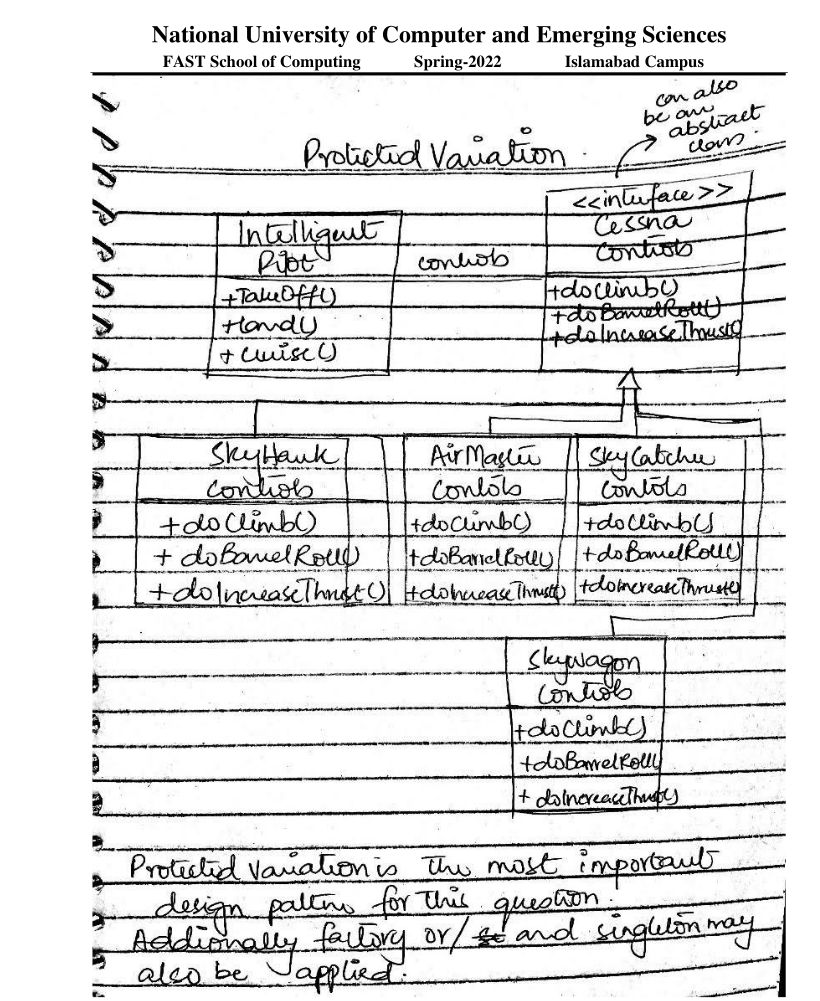 National University of Computer and Emerging Sciences
FAST School of Computing Spring-2022 Islamabad Campus
can also
be an
abstract
class.
Protected Variation
<<interface>>
Cessna
Controls
+doClimb()
+doBarrelRoll()
+doIncreaseThrust()
Intelligent
Pilot
+TakeOff()
+Land()
+cruise()
controls
SkyHawk
Controls
+doClimb()
+doBarrelRoll()
+doIncreaseThrust()
AirMaster
Controls
+doClimb()
+doBarrelRoll()
+doIncreaseThrust()
SkyCatcher
Controls
+doClimb()
+doBarrelRoll()
+doIncreaseThrust()
Skywagon
Controls
+doClimb()
+doBarrelRoll()
+doIncreaseThrust()
Protected Variation is the most important
design pattern for this question.
Addionally factory or/ and singleton may
also be applied.